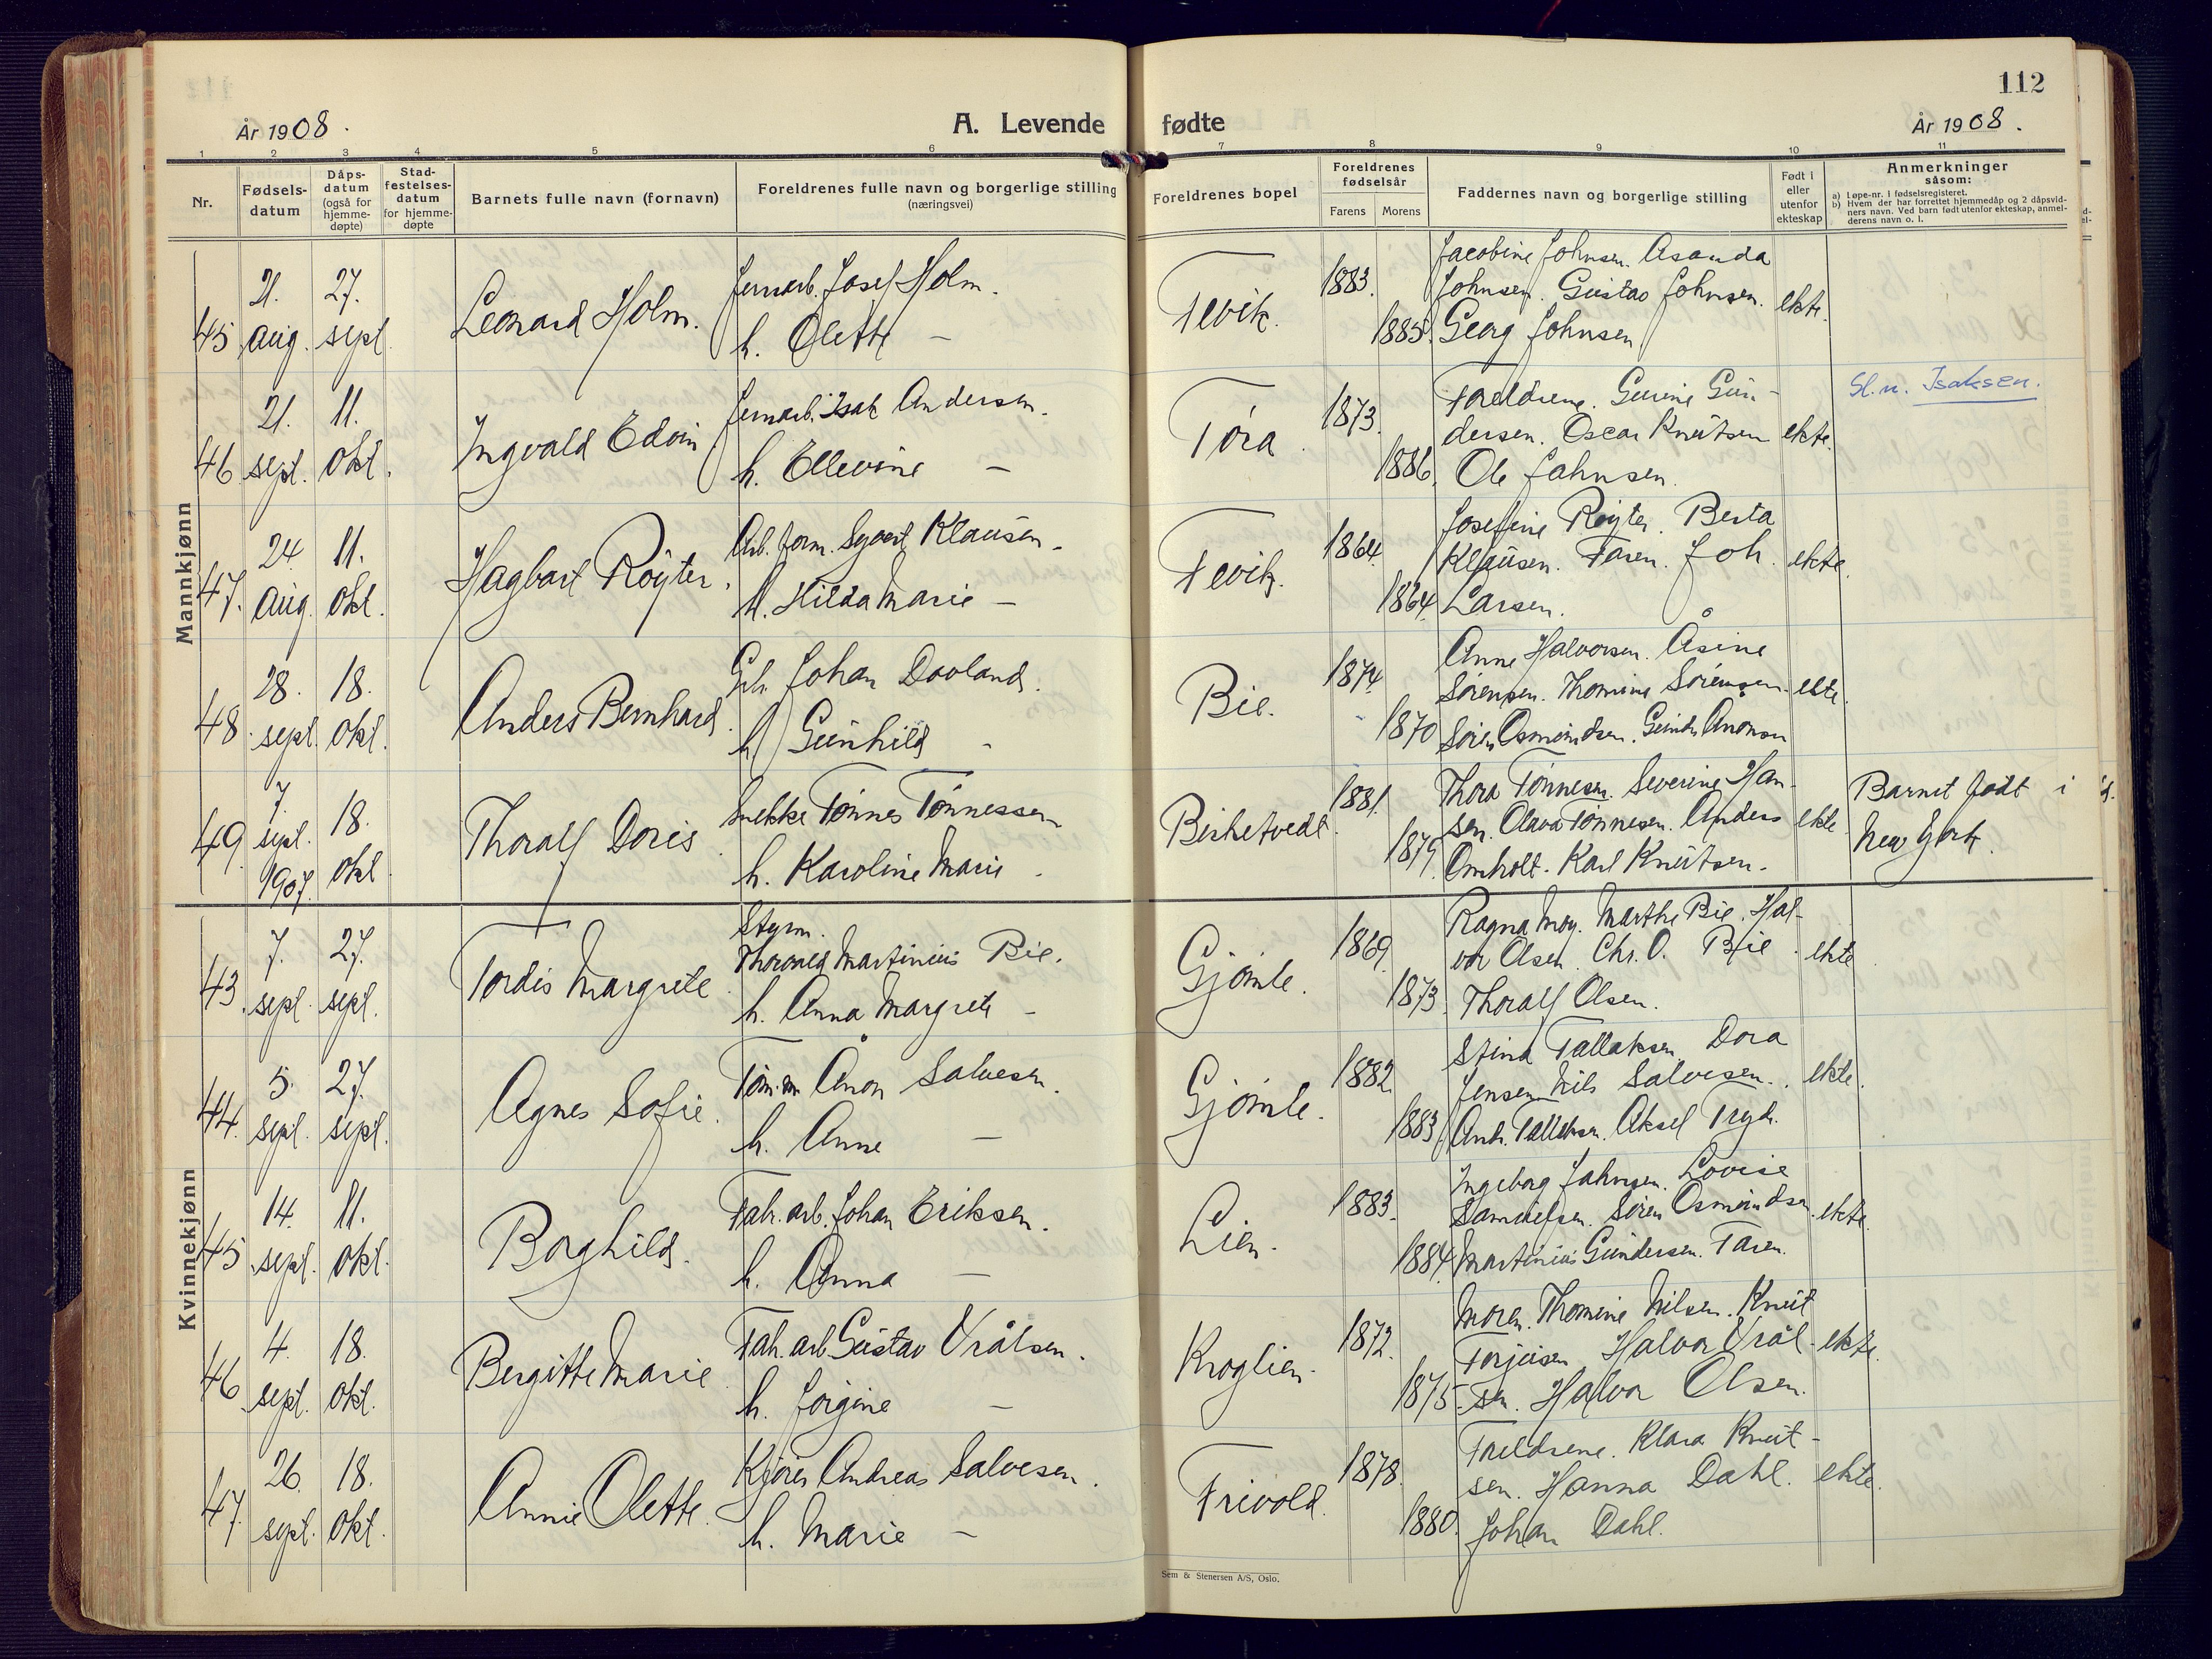 112
År 1908.
A. Levende fødte
År 1908.
1 2 3 4 5 6 7 8 9 10 11
Nr.
Fødsels-
datum
Dåps-
datum
(også for
hjemme-
døpte)
Stad-
festelses-
datum
for hjemme-
døpte
Barnets fulle navn (fornavn)
Foreldrenes fulle navn og borgerlige stilling
(næringsvei)
Foreldrenes bopel
Foreldrenes
fødselsår
Farens Morens
Faddernes navn og borgerlige stilling
Født i
eller
utenfor
ekteskap
Anmerkninger
såsom:
a) Løpe-nr. i fødselsregisteret.
b) Hvem der har forrettet hjemmedåp og 2 dåpsvid-
ners navn. Ved barn født utenfor ekteskap, anmel-
derens navn o. l.
Mannkjønn
45
21.
aug.
27.
sept
Leonard Holm.
Jernarb. Josef Holm.
h. Olette –
Fevik.
1883.
1885.
Jacobine Johnsen. Asanda
Johnsen. Gustav Johnsen.
Georg Johnsen
ekte.
46.
21.
sept.
11.
Okt.
Ingvald Edvin
Jernarb. Isak Andersen.
h. Ellevine –
Tora.
1873.
1886.
Foreldrene. Gurine Gun-
dersen. Oscar Knutsen
Ole Jahnsen.
ekte.
Sl.n. Isaksen.
47.
24.
Aug.
11.
Okt.
Hagbart Röyter.
Arb. form. Syvert Klausen.
h. Hilda Marie –
Fevik.
1864.
1864.
Josefine Røyter. Berta
Klausen. Faren. Joh.
Larsen.
ekte.
48.
28.
sept.
18.
Okt.
Anders Bernhard.
Gbr. Johan Dovland.
h. Gunhild –
Bie.
1874.
1870
Anne Halvorsen. Åsine
Sørensen. Thomine Sørensen.
Søren Osmundsen. Gunder Ånonsen
ekte.
49.
7.
sept.
1907.
18.
Okt
Thoralf Doris
Snekke Tønnes Tønnessen
h. Karoline Marie –
Birketvedt.
1881.
1879.
Thora Tønnesen. Severine Han-
sen. Olava Tønnesen. Anders
Omholt. Karl Knutsen.
ekte.
Barnet født i
New York.
Kvinnekjønn
43.
7.
sept.
27.
sept.
Tordis Margrete
Styrm.
Thorvald Martinius Bie.
h. Anna Margrete –
Gjømle.
1869.
1873.
Ragna Moy. Marthe Bie. Hal-
vor Olsen. Chr. O. Bie.
Thoralf Olsen.
ekte
44.
5.
sept.
27.
sept.
Agnes Sofie.
Tøm.m. Ånon Salvesen.
h. Anne –
Gjømle.
1882
1883
Stina Tallaksen. Dora
Jensen. Nils Salvesen.
Andr. Tallaksen. Aksel Trydr.
ekte.
45
14.
sept.
11.
Okt.
Borghild.
Fabr. arb. Johan Eriksen.
h. Anna –
Lien.
1883.
1884.
Ingeborg Jahnsen. Lovise
Samuelsen. Søren Osmundsen.
Martinius Gundersen. Faren.
ekte.
46.
4.
sept.
18.
Okt.
Bergitte Marie
Fabr. arb. Gustav Vrålsen.
h. Jørgine –
Kroglien.
1872.
1875.
Moren. Thomine Nilsen. Knut
Torjusen. Halvor Vrål-
sen. Halvor Olsen.
ekte.
47.
26.
sept.
18.
Okt.
Annie Olette.
Kjører Andreas Salvesen.
h. Marie –
Frivold.
1878.
1880.
Foreldrene. Klara Knut-
sen. Hanna Dahl.
Johan Dahl.
ekte.
Sem & Stenersen A/S, Oslo.